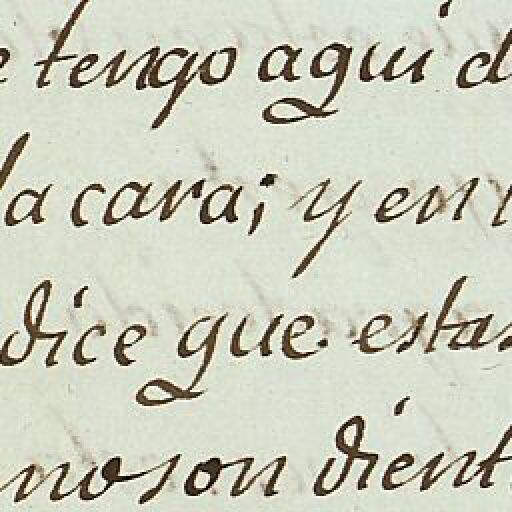 e tengo aqui d
la cara; y en l
dice que estas
no son dient